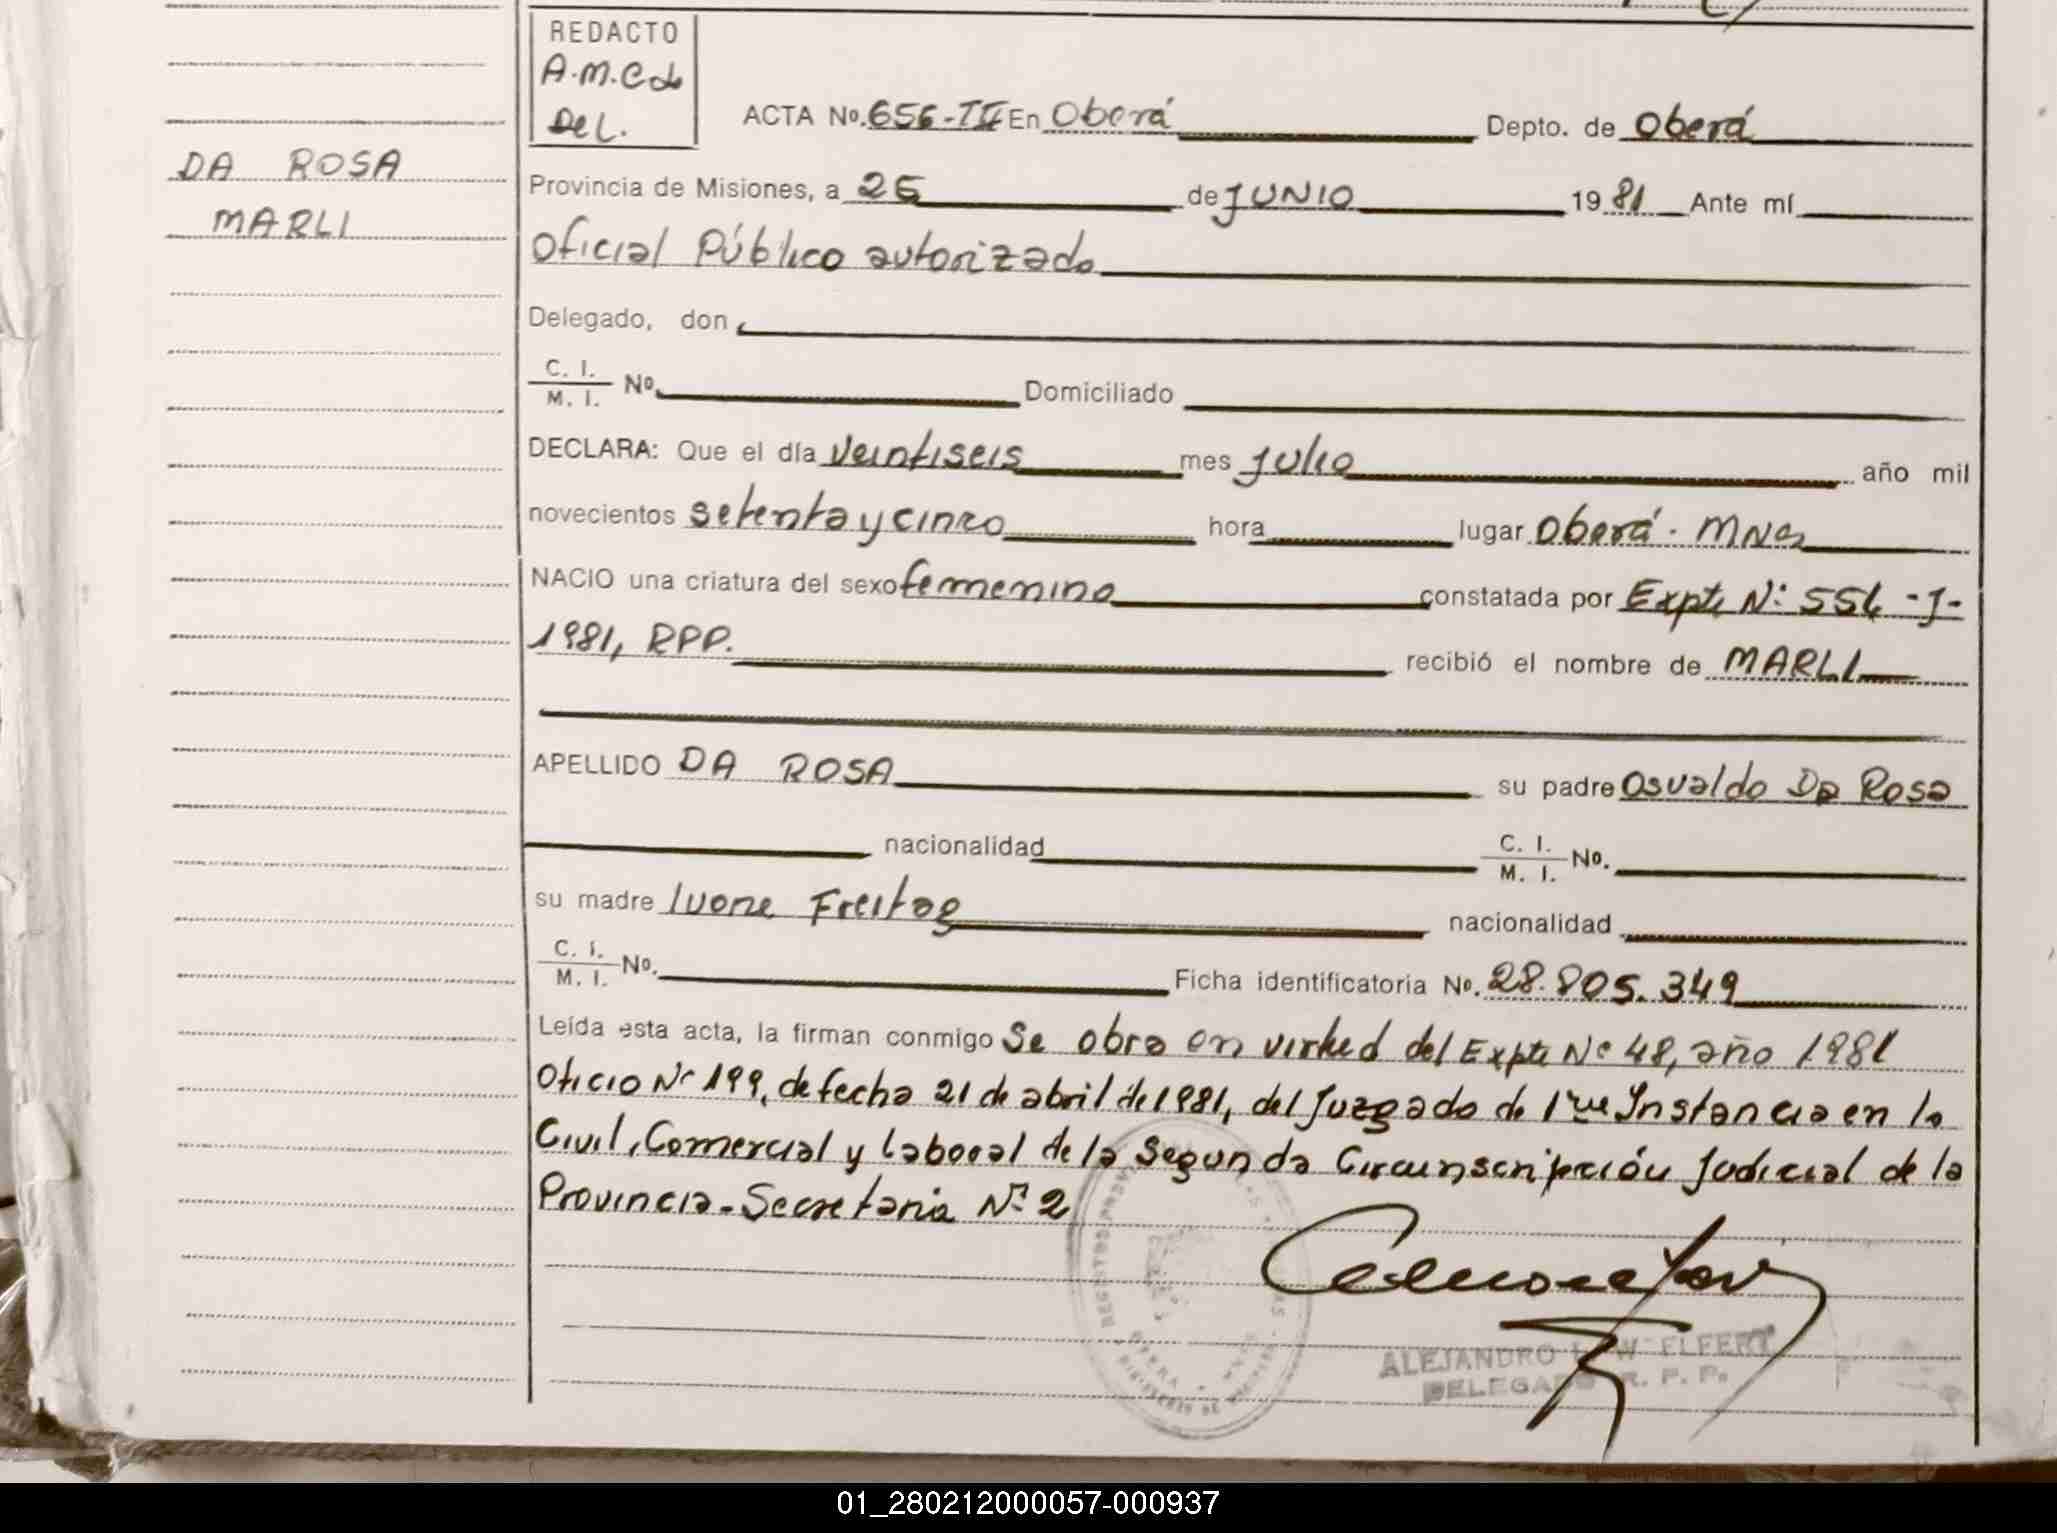 REDACTO
A.M.C de
Del.
ACTA Nº. 656-TII En Oberá Depto. de Oberá
DA ROSA
MARLI
Provincia de Misiones, a 26 de JUNIO 1981 Ante mí
Oficial Público autorizado
Delegado, don
C. I.
M. I. Nº. Domiciliado
DECLARA: Que el día veintiseis mes Julio año mil
novecientos setenta y cinco hora lugar Oberá. MNes
NACIO una criatura del sexo femenino constatada por Expte Nº 554 -J-
1981, RPP. recibió el nombre de MARLI
APELLIDO DA ROSA su padre Osvaldo Da Rosa
nacionalidad C. I.
M. I. Nº.
su madre Ivone Freitag nacionalidad
C. I.
M. I. Nº. Ficha identificatoria Nº. 28.805.349
Leída esta acta, la firman conmigo Se obra en virtud del Expte Nº 48, año 1981
Oficio Nº 199, de fecha 21 de abril de 1981, del Juzgado de 1ra Instancia en lo
Civil, Comercial y Laboral de la Segunda Circunscripción Judicial de la
Provincia - Secretaria Nº 2
ALEJANDRO ELFERT
DELEGADO R. P. P.
01_280212000057-000937